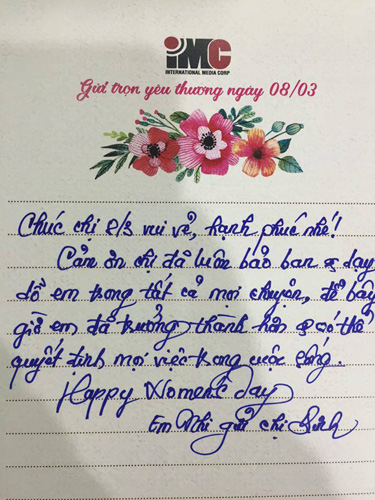 iMC
INTERNATIONAL MEDIA CORP
Gửi trọn yêu thương ngày 08/03
Chúc chị 8/3 vui vẻ, hạnh phúc nhé!
Cảm ơn chị đã luôn bảo ban & dạy
dỗ em trong tất cả mọi chuyện, để bây
giờ em đã trưởng thành hơn & có thể
quyết định mọi việc trong cuộc sống.
Happy Women's day
Em Nhi gửi chị